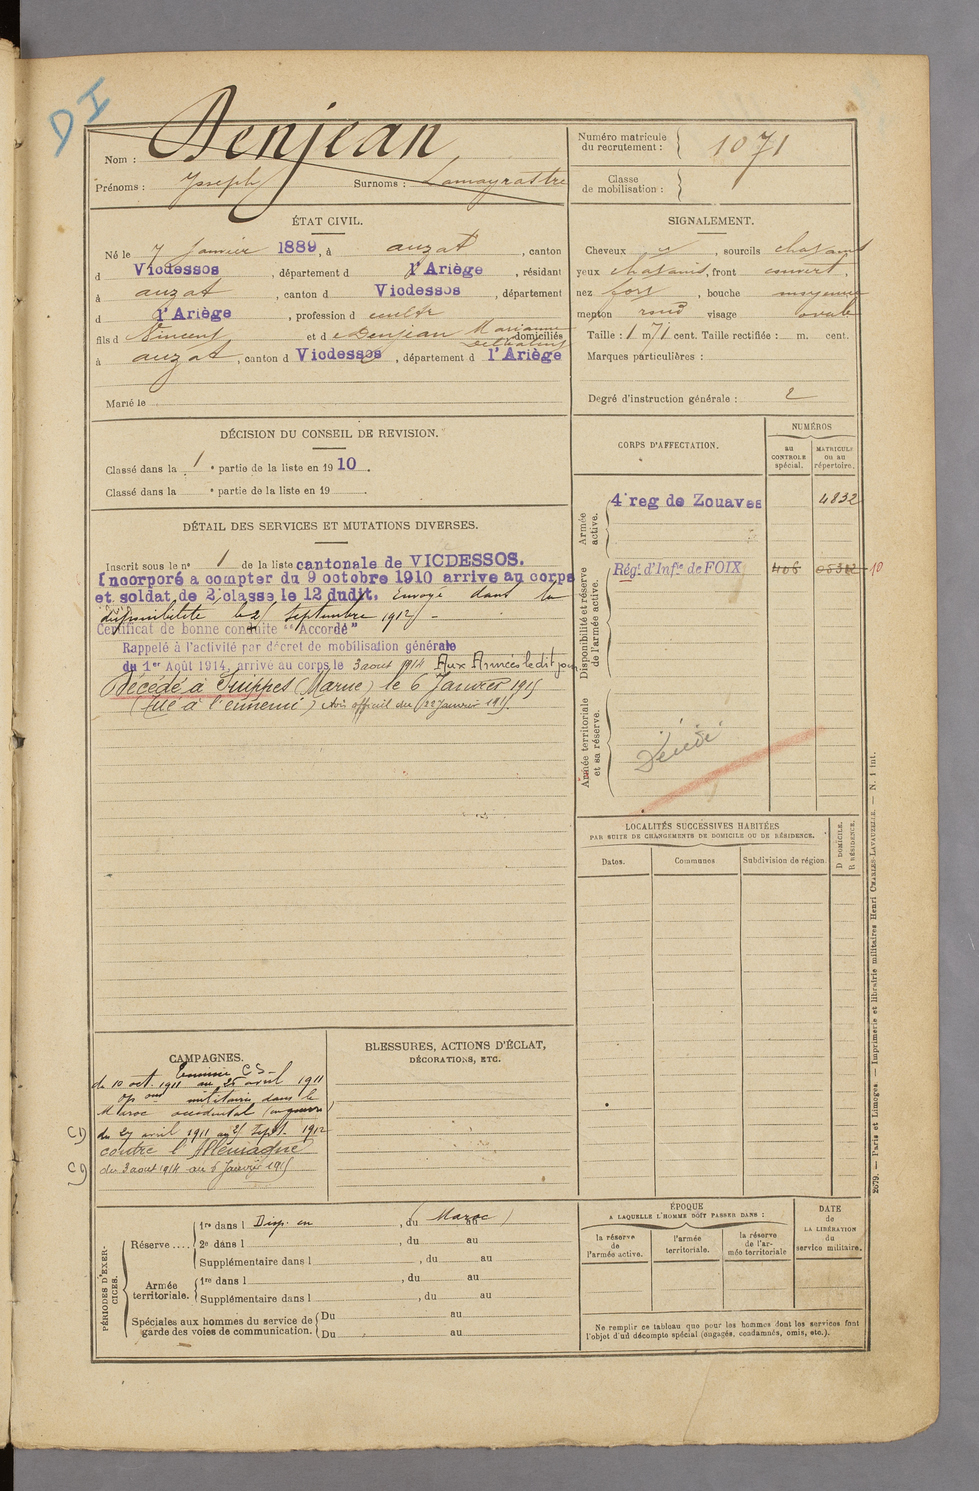 DI
Nom : Denjean
Prénoms : Joseph Surnoms : Lamayrastre
Numéro matricule
du recrutement : 1071
Classe
de mobilisation :
ÉTAT CIVIL.
Né le 7 Janvier 1889, à auzat, canton
d Vicdessos, département d l'Ariège, résidant
à auzat, canton d Vicdessos, département
d l'Ariège, profession d cultr
fils d Vincent et d Denjean Marianne domiciliés
à auzat, canton d Vicdessos, département d l'Ariège
Marié le
SIGNALEMENT.
Cheveux , sourcils chatains
yeux chatains, front couvert,
nez fort, bouche moyenne
menton rond visage ovale
Taille : 1 m 71 cent. Taille rectifiée : m. cent.
Marques particulières :
Degré d'instruction générale : 2
DÉCISION DU CONSEIL DE REVISION.
Classé dans la 1 e partie de la liste en 1910.
Classé dans la e partie de la liste en 19 .
DÉTAIL DES SERVICES ET MUTATIONS DIVERSES.
Inscrit sous le n° 1 de la liste cantonale de VICDESSOS.
Incorporé a compter du 9 octobre 1910 arrive au corps
et soldat de 2 classe le 12 dudit. Envoyé dans la
disponibilité le 25 Septembre 1912 -
Certificat de bonne conduite "Accordé"
Rappelé à l'activité par décret de mobilisation générale
du 1er Août 1914, arrivé au corps le 3 aout 1914 Aux Armées le dit jour.
Décédé à Suippes (Marne) le 6 Janvier 1915
(tué à l'ennemi) Avis officiel du 22 Janvier 1915.
CORPS D'AFFECTATION.
NUMÉROS
au
CONTROLE
spécial.
MATRICULE
ou au
répertoire.
Armée
active.
4 reg de Zouaves 4832
Disponibilité et réserve
de l'armée active.
Régt. d'Infie de FOIX 406 10
Armée territoriale
et sa réserve.
Décédé
LOCALITÉS SUCCESSIVES HABITÉES
PAR SUITE DE CHANGEMENTS DE DOMICILE OU DE RÉSIDENCE.
Dates.
Communes
Subdivision de région
D DOMICILE.
R RÉSIDENCE.
CAMPAGNES.
Tunisie CS-
de 10 oct. 1911 au 25 avril 1911
opons militaires dans le
Maroc occidental (en guerre)
CD du 27 avril 1911 au 25 Sept. 1912
contre l'Allemagne
CD du 3 aout 1914 au 6 Janvier 1915
BLESSURES, ACTIONS D'ÉCLAT,
DÉCORATIONS, ETC.
PÉRIODES D'EXER-
CICES.
Réserve ....
1re dans l Disp. en , (du Maroc au )
2e dans l , du au
Supplémentaire dans l , du au
Armée
territoriale.
1re dans l , du au
Supplémentaire dans l , du au
Spéciales aux hommes du service de
garde des voies de communication.
Du au
Du au
ÉPOQUE
A LAQUELLE L'HOMME DOIT PASSER DANS :
la réserve
de
l'armée active.
l'armée
territoriale.
la réserve
de l'ar-
mée territoriale
DATE
de
LA LIBÉRATION
du
service militaire.
Ne remplir ce tableau que pour les hommes dont les services font
l'objet d'un décompte spécial (engagés, condamnés, omis, etc.).
2079. — Paris et Limoges. — Imprimerie et librairie militaires Henri CHARLES-LAVAUZELLE. — N. 1 int.